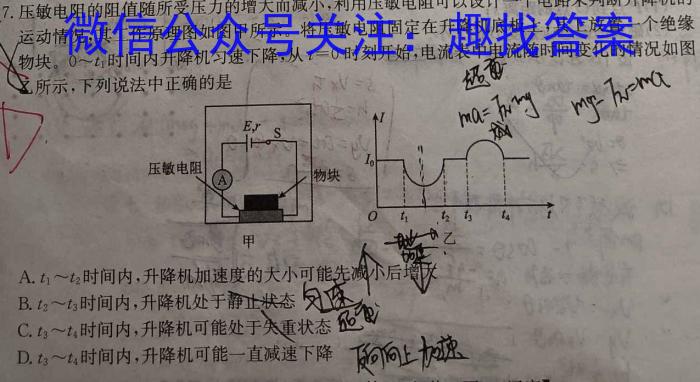 7.压敏电阻的阻值随所受压力的增大而减小,利用压敏电阻可以设计一个电路来判断升降机的
运动情况,其工作原理图如图甲所示.将压敏电阻固定在升降机底板上,其上放置一个绝缘
微信公众号关注:趣找答案
物块。0~t₁时间内升降机匀速下降,从t=0时刻开始,电流表中电流随时间变化的情况如图
乙所示,下列说法中正确的是
超重
mg-FN=ma
E,r
S
A
压敏电阻
物块
甲
I
I₀
O
t₁
t₂
t₃
t₄
t
乙
A. t₁~t₂时间内,升降机加速度的大小可能先减小后增大
B. t₂~t₃时间内,升降机处于静止状态
匀速
C. t₃~t₄时间内,升降机可能处于失重状态
超重
D. t₃~t₄时间内,升降机可能一直减速下降
加速